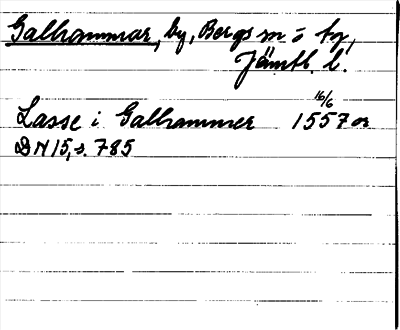 Galhammar, by, Bergs sn o. tg,
Jämtl. l.
16/6
Lasse i Galhammer 1557 or
DN 15, s. 785